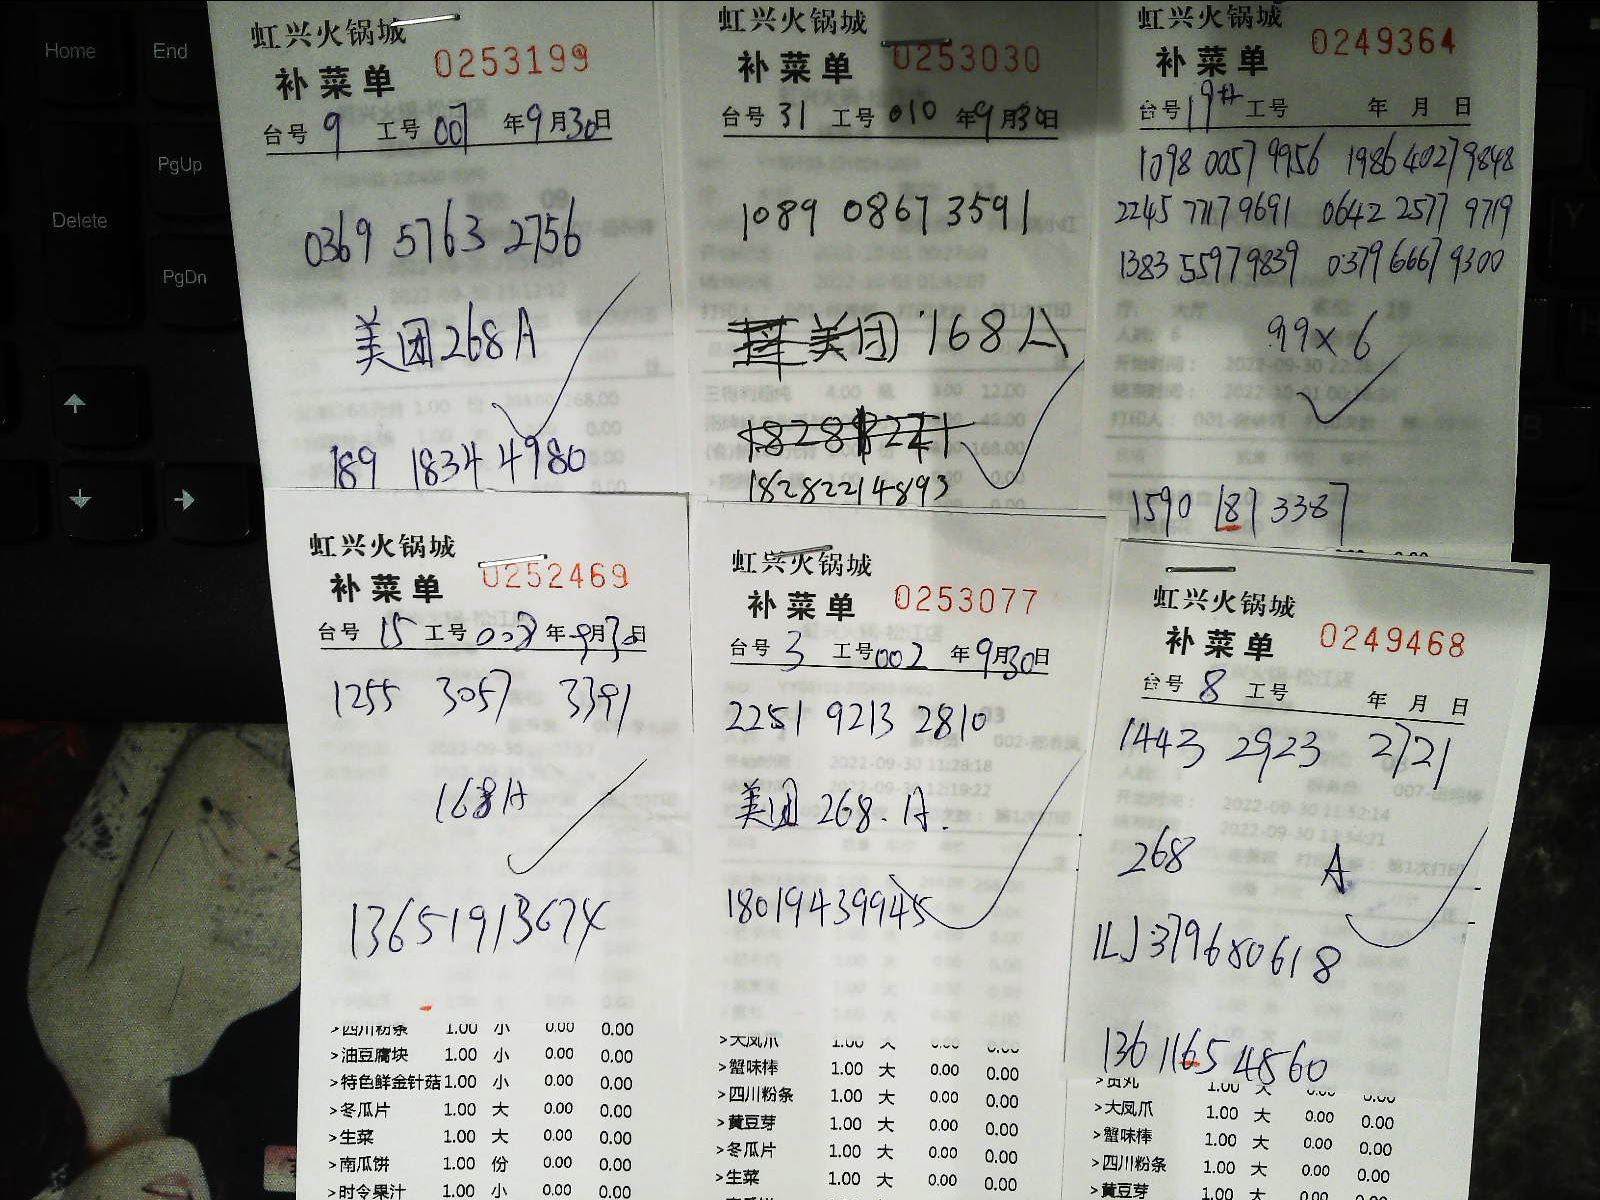 Home
End
PgUp
Delete
PgDn
虹兴火锅城
补菜单 0253199
台号 9 工号 007 年9月30日
0369 5763 2756
美团268A
189 1834 4980
虹兴火锅城
补菜单 0253030
台号 31 工号 010 年9月30日
1089 0867 3591
美团168A
18282214893
虹兴火锅城
补菜单 0249364
台号 19卅 工号 年 月 日
1098 0057 9956 1986 4027 9848
2245 7717 9691 0642 2577 9719
1383 5597 9839 0379 6667 9300
99×6
1590 187 3387
虹兴火锅城
补菜单 0252469
台号 15 工号 008 年9月30日
1255 3057 3391
168A
13651913674
>四川粉条 1.00 小 0.00 0.00
>油豆腐块 1.00 小 0.00 0.00
>特色鲜金针菇1.00 小 0.00 0.00
>冬瓜片 1.00 大 0.00 0.00
>生菜 1.00 大 0.00 0.00
>南瓜饼 1.00 份 0.00 0.00
>时令果汁 1.00 小 0.00 0.00
虹兴火锅城
补菜单 0253077
台号 3 工号002 年9月30日
2251 9213 2810
美团 268.A.
18019439945
>大凤爪 1.00 大 0.00 0.00
>蟹味棒 1.00 大 0.00 0.00
>四川粉条 1.00 大 0.00 0.00
>黄豆芽 1.00 大 0.00 0.00
>冬瓜片 1.00 大 0.00 0.00
>生菜 1.00 大 0.00 0.00
虹兴火锅城
补菜单 0249468
台号 8 工号 年 月 日
1443 2923 2721
268 A
1LJ379680618
136 1165 4860
>贡丸 1.00 大 0.00 0.00
>大凤爪 1.00 大 0.00 0.00
>蟹味棒 1.00 大 0.00 0.00
>四川粉条 1.00 大 0.00 0.00
>黄豆芽 1.00 大 0.00 0.00